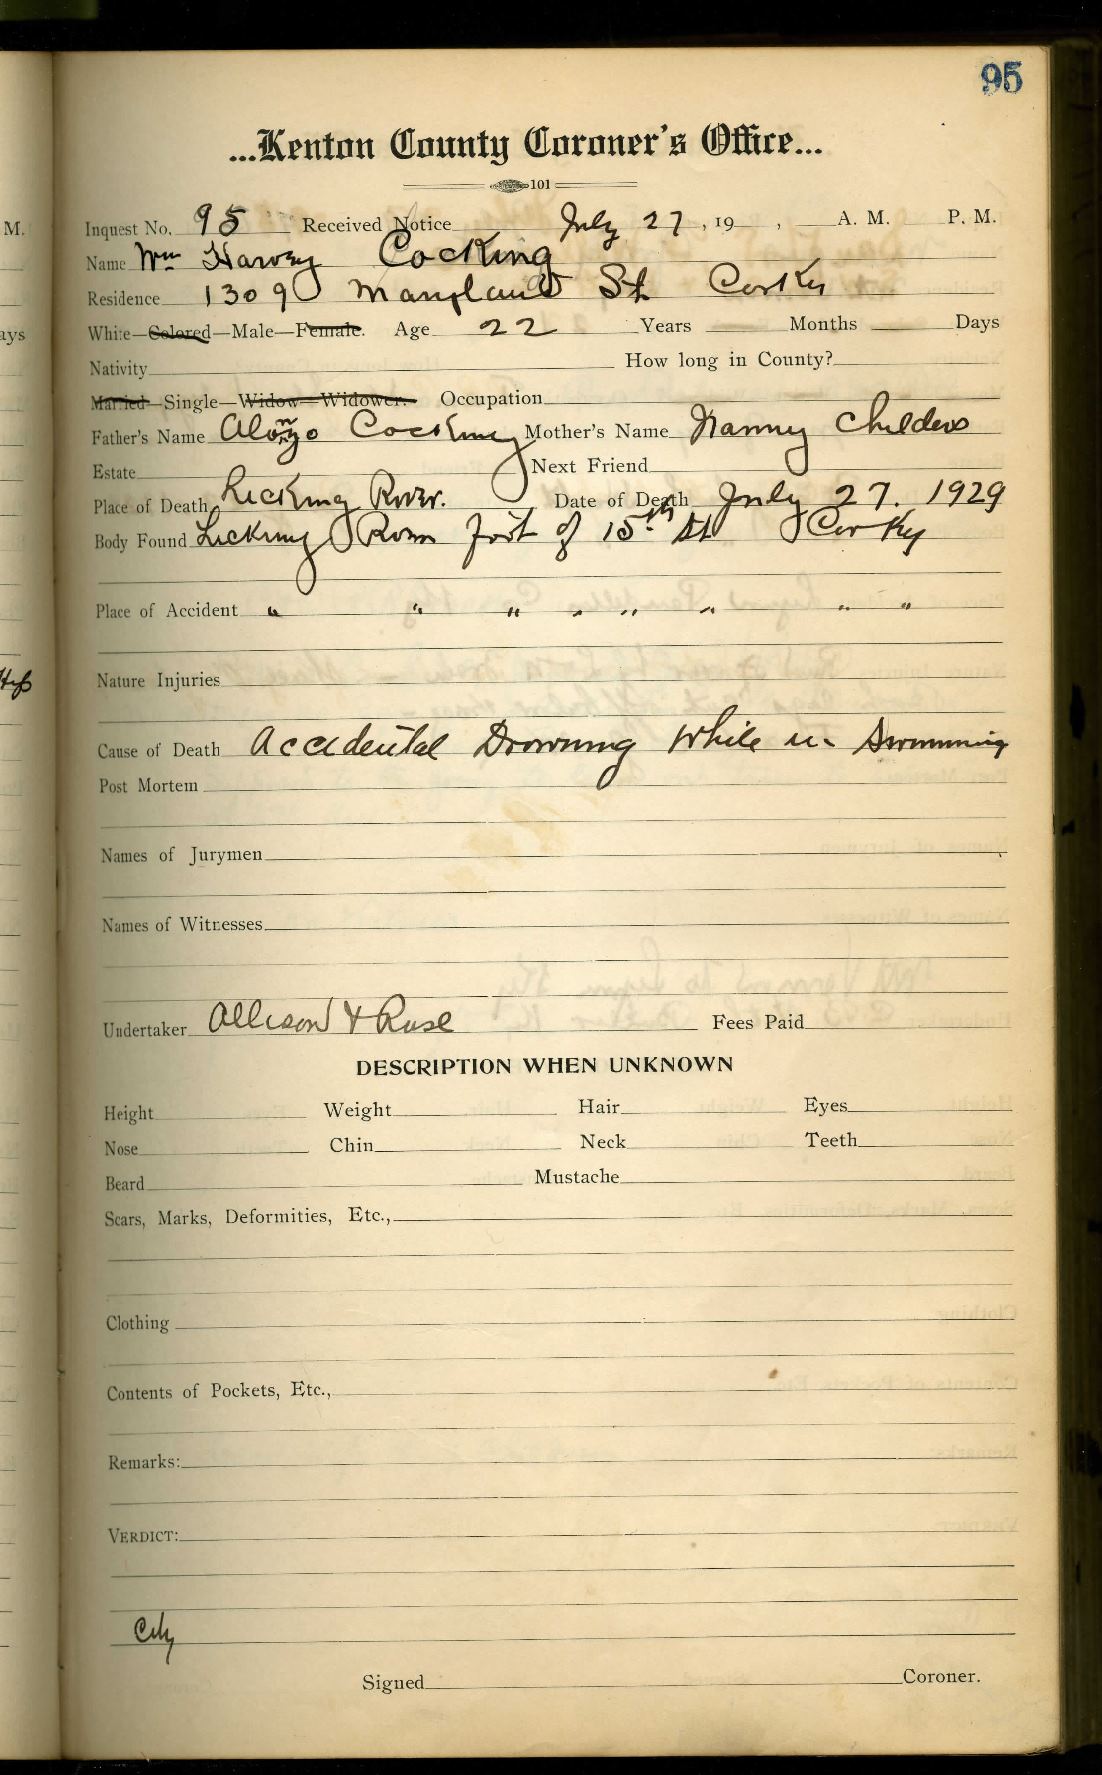 95
...Kenton County Coroner's Office...
101
Inquest No. 95 Received Notice July 27, 19 , A. M. P. M.
Name Wm Harvey Cocking
Residence 1309 Maryland St Cov Ky
White—Colored—Male—Female. Age 22 Years Months Days
Nativity How long in County?
Married—Single—Widow—Widower. Occupation
Father's Name Alonzo Cocking Mother's Name Nanny Childers
Estate Next Friend
Place of Death Licking River. Date of Death July 27. 1929
Body Found Licking River foot of 15th St Cov Ky
Place of Accident " " " " " " " "
Nature Injuries
Cause of Death Accidental Drowning While in Swimming
Post Mortem
Names of Jurymen
Names of Witnesses
Undertaker Allison & Rose Fees Paid
DESCRIPTION WHEN UNKNOWN
Height Weight Hair Eyes
Nose Chin Neck Teeth
Beard Mustache
Scars, Marks, Deformities, Etc.,
Clothing
Contents of Pockets, Etc.,
Remarks:
VERDICT:
City
Signed Coroner.